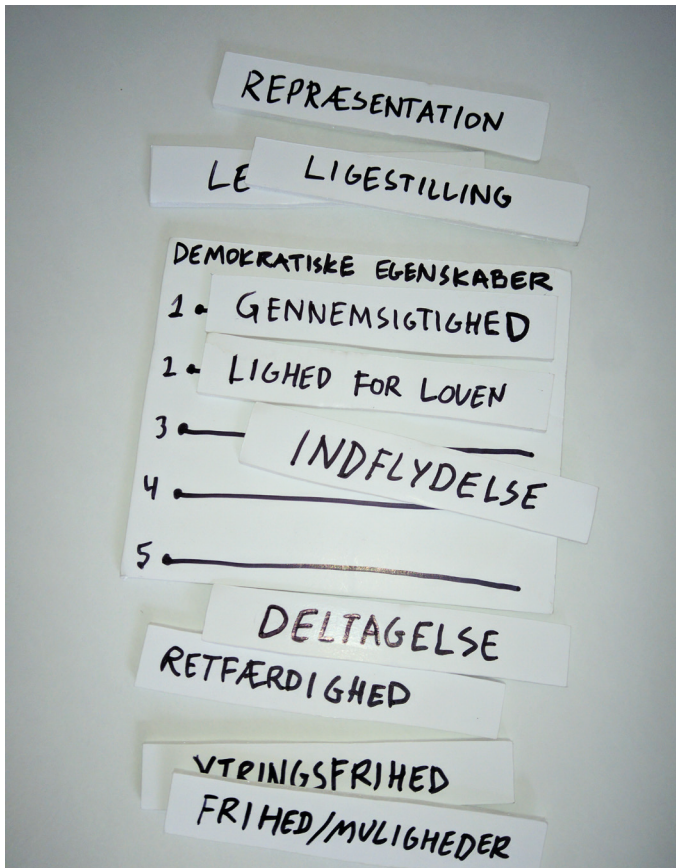 REPRÆSENTATION
LIGESTILLING
DEMOKRATISKE EGENSKABER
1 GENNEMSIGTIGHED
2 LIGHED FOR LOVEN
3
INDFLYDELSE
4
5
DELTAGELSE
RETFÆRDIGHED
YTRINGSFRIHED
FRIHED/MULIGHEDER